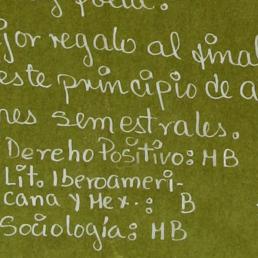 y poeta.
jor regalo al final
este principio de a
nes semestrales.
Derecho Positivo: MB
Lit. Iberoameri-
cana y Mex.: B
Sociología: MB